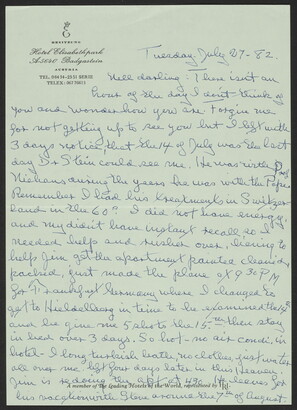 E
SRS-LUXURY
Hotel Elisabethpark
A-5640 Badgastein
AUSTRIA
Tuesday July 27-82.
Nell darling: There isn't an
hour of the day I don't think of
you and wonder how you are. Forgive me
for not getting up to see you but I left with
3 days notice that the 14 of July was the last
day Dr Stein could see me. He was with Dr
Niehans during the years he was with the Pope.
Remember I had his treatments in Switzer
land in the 60s. I did not have energy,
and my didnt have instant recall so I
needed help and rushed over, having to
help Jim get the apartment painted cleaned
packed, just made the plane 9 30 PM
for Frankfurt Germany where I changed to
get to Heidelberg in time to be examined the 14th
and he give me 5 shots the 15th then stay
in bed over 3 days. So hot - no air condi, in
hotel - I long turkish water, no clothes, just water
all over me. left four days later in this heaven.
Jim is redoing the apt at 430. He leaves for
his vacation with Ilene around the 7th of August.
A member of the Leading Hotels of the World, represented by HRI